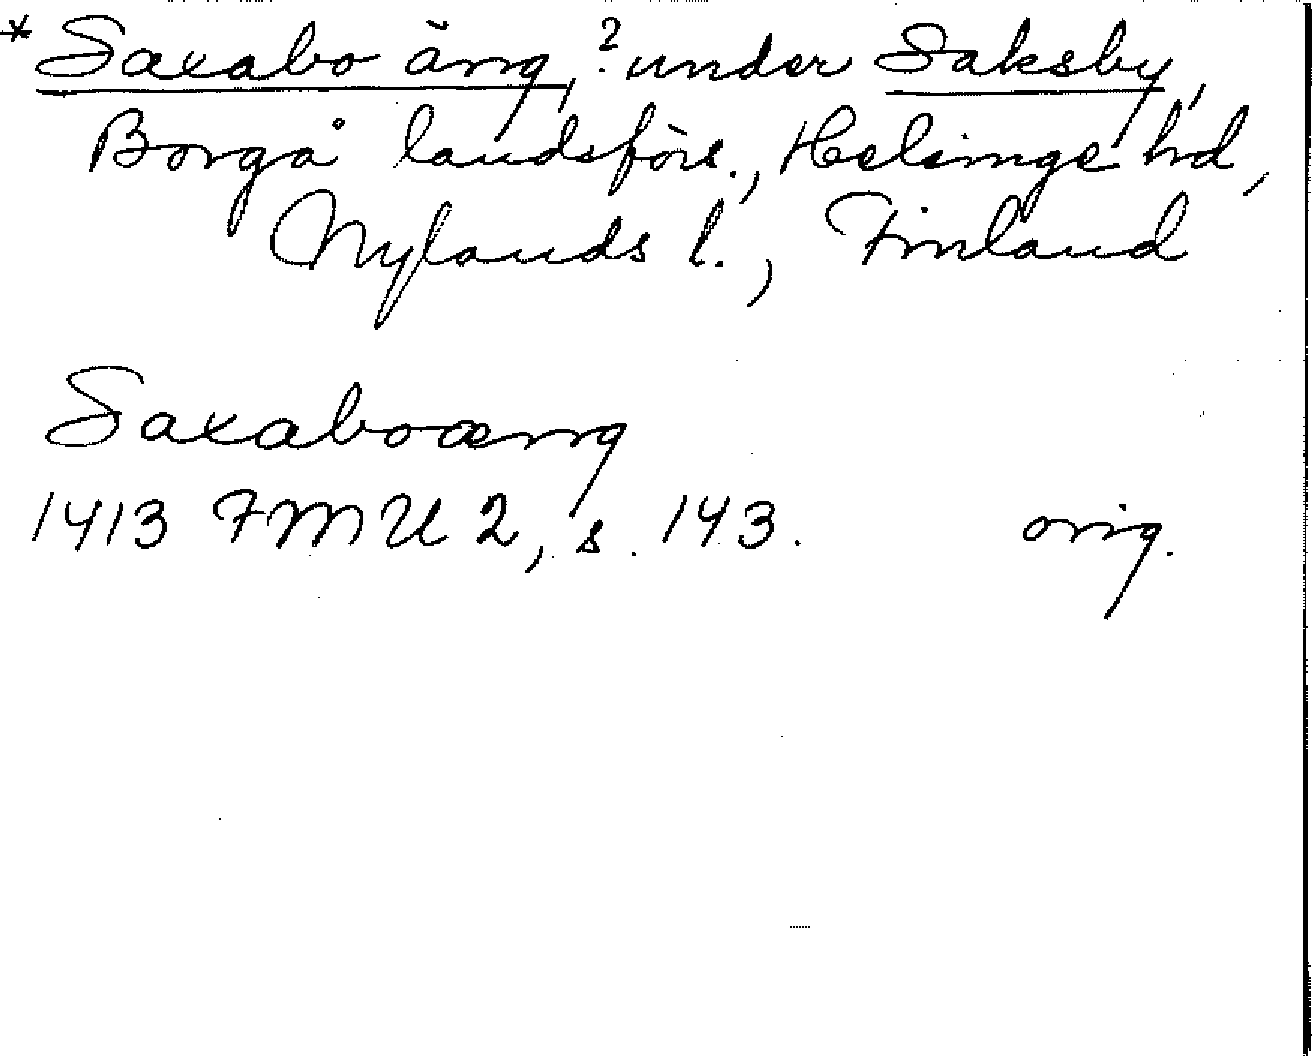 * Saxabo äng, ? under Saksby,
Borgå landsförs., Helsinge hd,
Nylands l., Finland
Saxaboæng
1413 FMU 2, s. 143. orig.